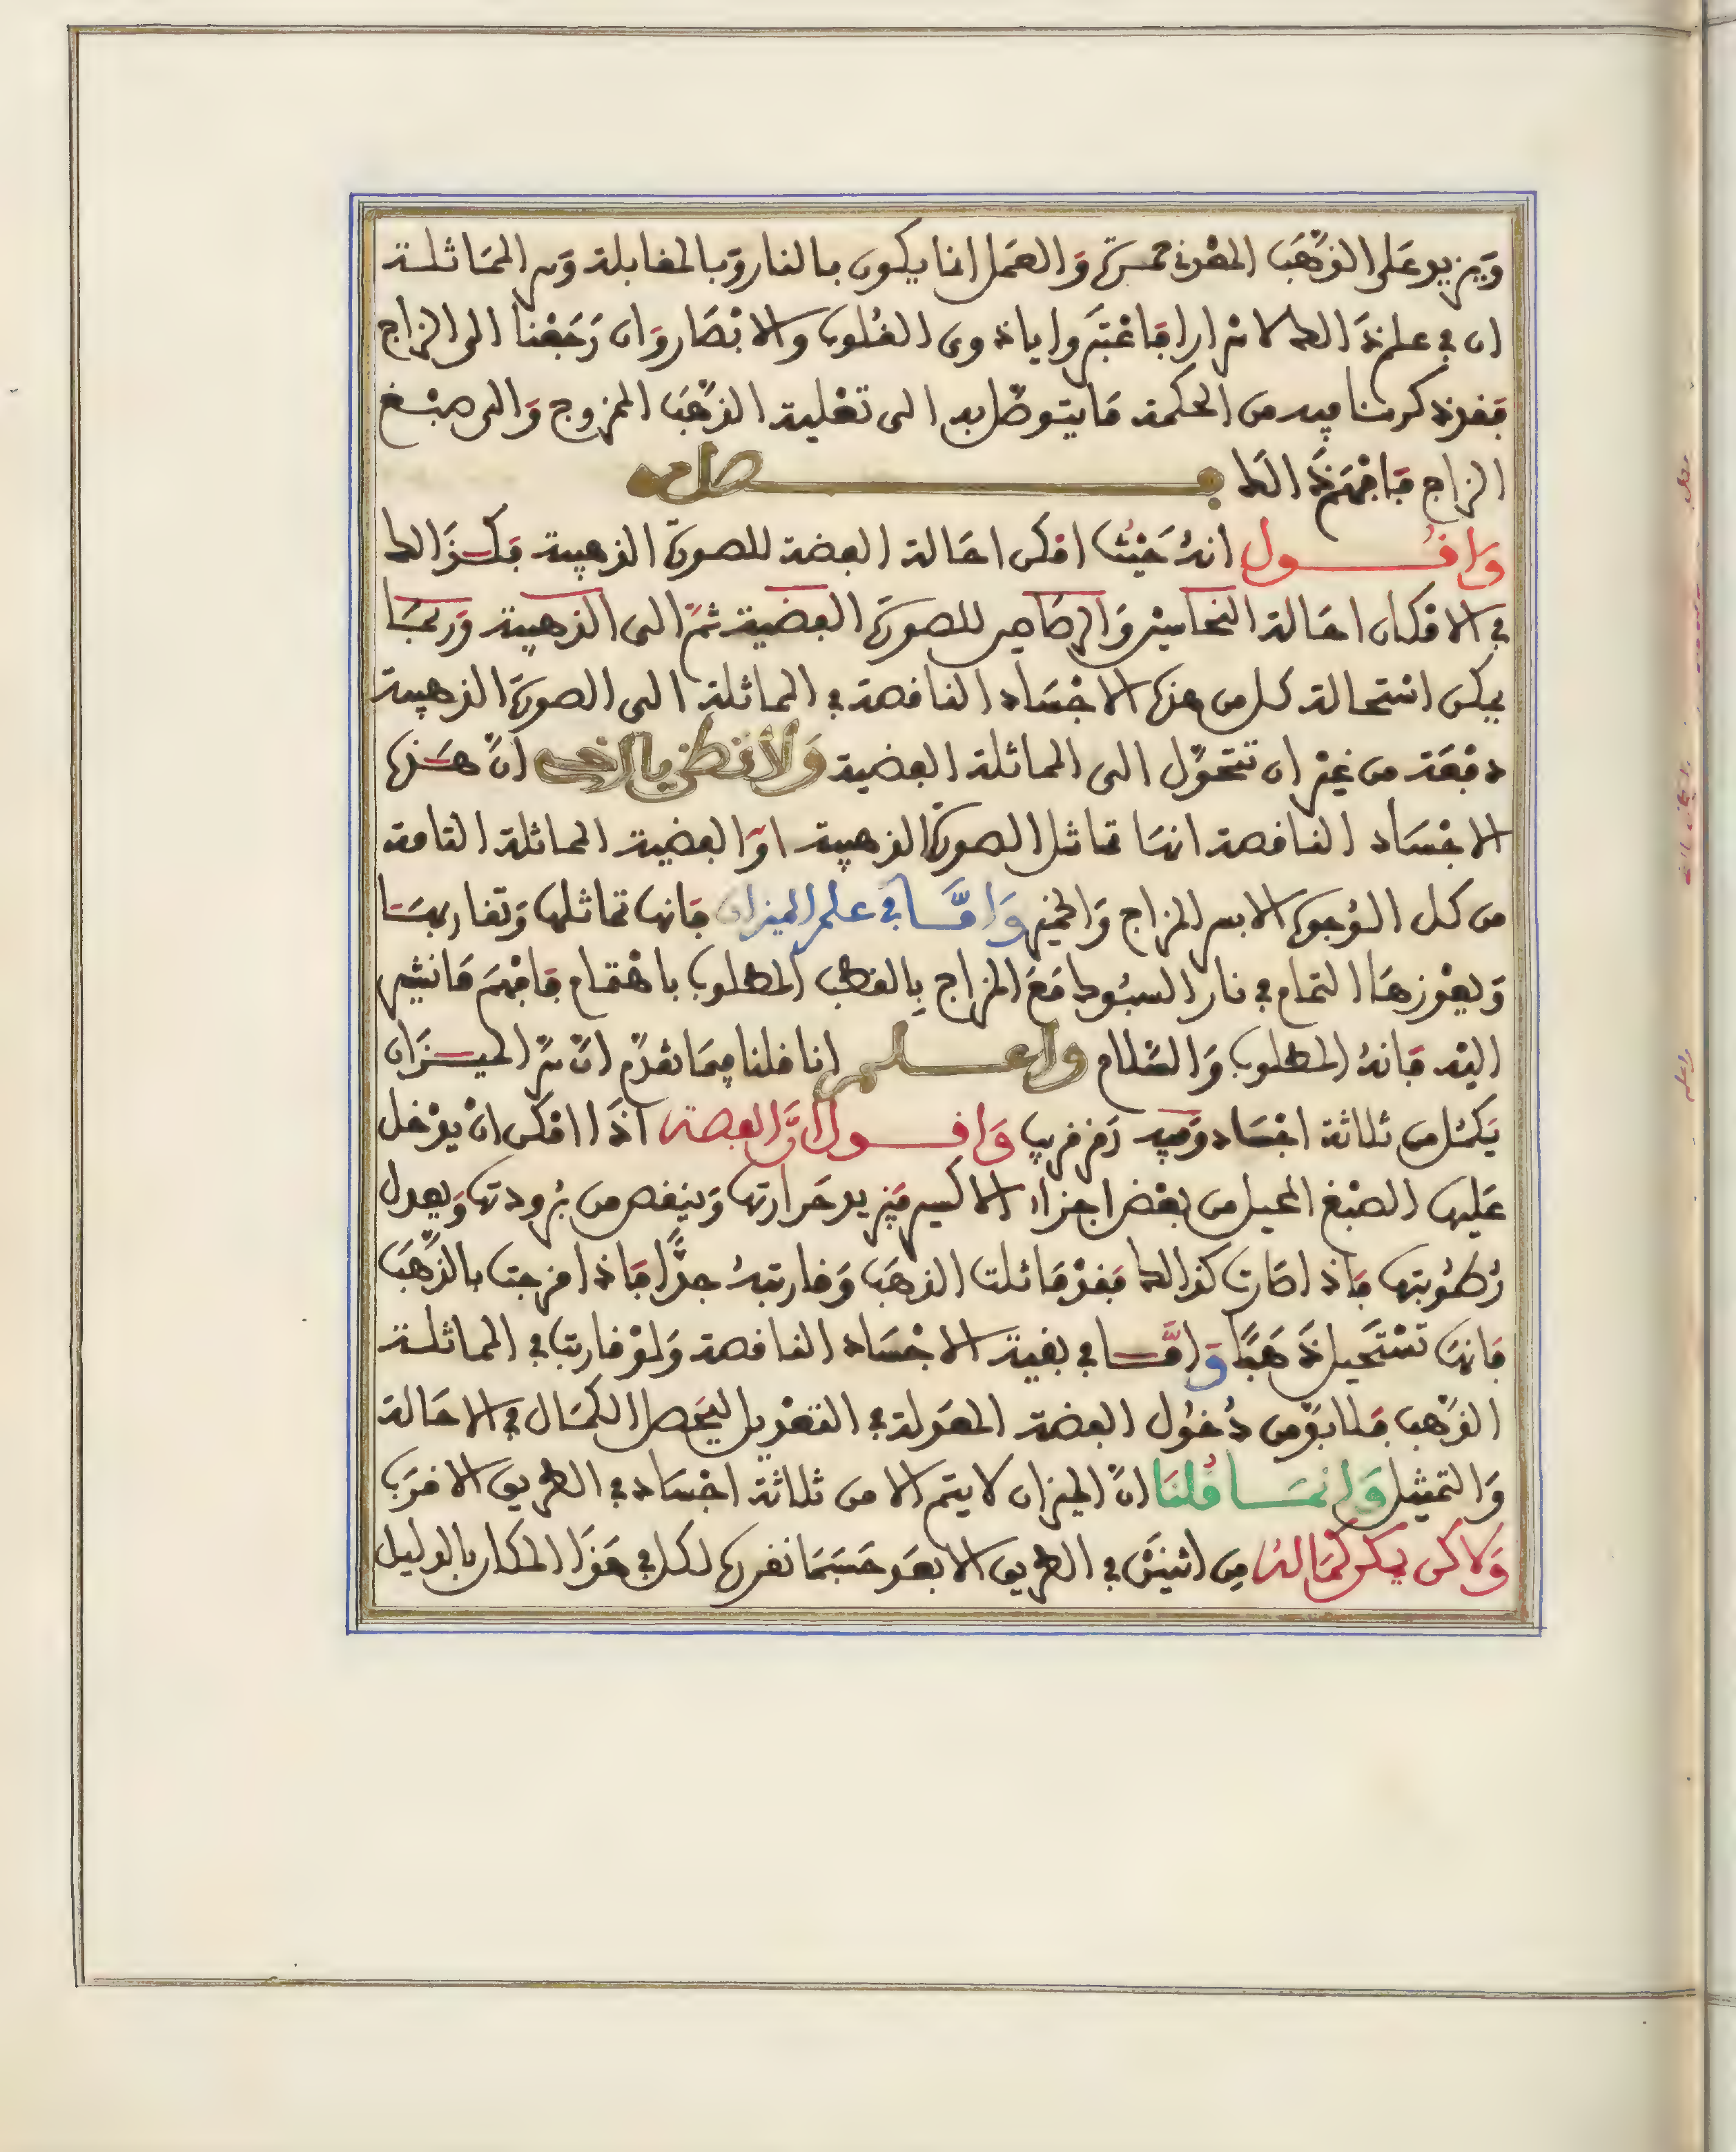 ويزيد على الذهب المعدني حمرة والعمل انما يكون بالنار وبالمقابلة وسر المماثلة
ان في علم ذالك لاسرارا فاعتبروا ياذوى القلوب والابصار وان رجعنا الى المزاج
فقد ذكرنا فيه من الحكمة ما يتوصل به الى تغلية الذهب الممزوج والى صبغ
المزاج فافهم ذالك فصل منه
واقول انه حيث امكن احالة الفضة للصورة الذهبية فكذالك
في الامكان احالة النحاسين والرصاصين للصورة الفضية ثم الى الذهبية وربما
يمكن استحالة كل من هذه الاجساد الناقصة في المماثلة الى الصورة الذهبية
دفعة من غير ان تتحول الى المماثلة الفضية ولا تظن يا اخي ان هذه
الاجساد الناقصة انها تماثل الصورة الذهبية او الفضية المماثلة التامة
من كل الوجوه الا بسر المزاج والخمير واما في علم الميزان فانها تماثلها وتقاربها
ويعوزها التمام في نار السبوك مع المزاج بالقطب المطلوب باهتمام فافهم ما نشير
اليه فانه المطلوب والسلام واعلم انا قلنا فيما تقدم ان سر الميزان
يكمل من ثلاثة اجساد وفيه رمز قريب واقول ان الفضة اذا امكن ان يدخل
عليها الصبغ المحيل من بعض اجزاء الاكسير فيزيد حرارتها وينقص من برودتها ويعدل
رطوبتها فاذا كان كذالك فقد ماثلت الذهب وقاربته جدا فاذا مزجت بالذهب
فانها تستحيل ذهبا واما في بقية الاجساد الناقصة ولو قاربت في المماثلة
الذهب فلا بد من دخول الفضة المعدولة في التعديل ليحصل الكمال في الاحالة
والتمثيل وانما قلنا ان الميزان لا يتم الا من ثلاثة اجساد في الطريق الاقرب
ولاكن يمكن كماله من اثنين في الطريق الابعد حسبما نقرره لك في هذا المكان بالدليل